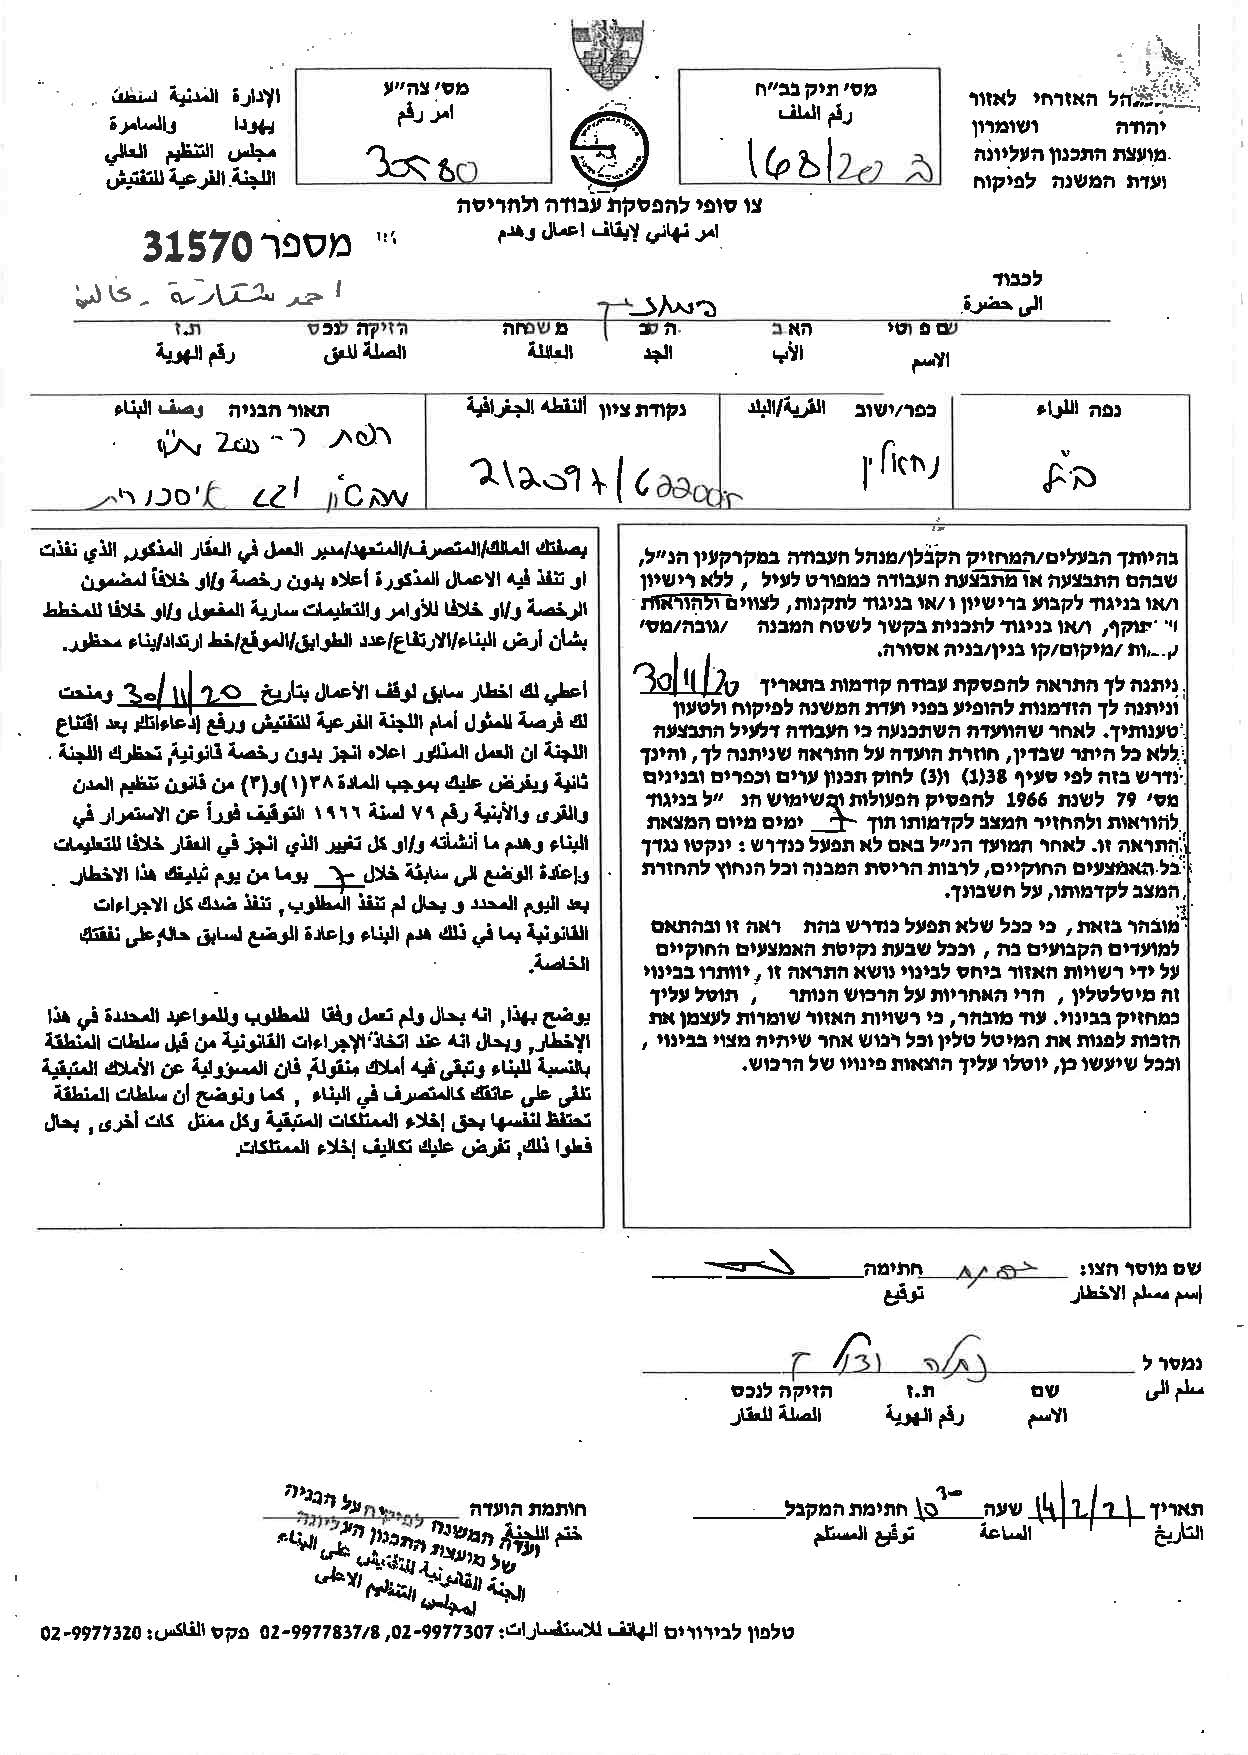 מס' תיק בב"ח
رقم الملف
ב 168/20
מס' צה"ע
امر رقم
30580
הל האזרחי לאזור
יהודה ושומרון
מועצת התכנון העליונה
ועדת המשנה לפיקוח
الإدارة المدنية لمنطقة
يهودا والسامرة
مجلس التنظيم العالي
اللجنة الفرعية للتفتيش
צו סופי להפסקת עבודה ולחריסה
امر نهائي لإيقاف اعمال وهدم
מספר 31570
לכבוד
الى حضرة
המחזיק
احمد
שם פרטי האב הסב משפחה הזיקה לנכס ת.ז
الاسم الأب الجد العائلة الصلة للعق رقم الهوية
נפה اللواء
כפר/ישוב القرية/البلد
נקודת ציון النقطه الجغرافية
תאור הבניה وصف البناء
נחאלין
בהיותך הבעלים/המחזיק הקבלן/מנהל העבודה במקרקעין הנ"ל,
שבהם התבצעה או מתבצעת העבודה כמפורט לעיל, ללא רישיון
ו/או בניגוד לקבוע ברישיון ו/או בניגוד לתקנות, לצווים ולהוראות
תוקף, ו/או בניגוד לתכנית בקשר לשטח המבנה /גובה/מס'
ות /מיקום/קו בנין/בניה אסורה.
ניתנה לך התראה להפסקת עבודה קודמות בתאריך 30/11/20
וניתנה לך הזדמנות להופיע בפני ועדת המשנה לפיקוח ולטעון
טענותיך. לאחר שהוועדה השתכנעה כי העבודה דלעיל התבצעה
ללא כל היתר שבדין, חוזרת הועדה על התראה שניתנה לך, והינך
נדרש בזה לפי סעיף 38(1) ו(3) לחוק תכנון ערים וכפרים ובנינים
מס' 79 לשנת 1966 להפסיק הפעולות והשימוש הנ"ל בניגוד
להוראות ולהחזיר המצב לקדמותו תוך 7 ימים מיום המצאת
התראה זו. לאחר המועד הנ"ל באם לא תפעל כנדרש: ינקטו נגדך
כל האמצעים החוקיים, לרבות הריסת המבנה וכל הנחוץ להחזרת
המצב לקדמותו, על חשבונך.
מובהר בזאת, כי ככל שלא תפעל כנדרש בהת ראה זו ובהתאם
למועדים הקבועים בה, וככל שבעת נקיטת האמצעים החוקיים
על ידי רשויות האזור ביחס לבינוי נושא התראה זו, יוותרו בבינוי
זה מיטלטלין, הרי האחריות על הרכוש הנותר, תוטל עליך
כמחזיק בבינוי. עוד מובהר, כי רשויות האזור שומרות לעצמן את
הזכות לפנות את המיטל טלין וכל רכוש אחר שיהיה מצוי בבינוי,
וככל שיעשו כן, יוטלו עליך הוצאות פינויו של הרכוש.
بصفتك المالك/المتصرف/المتعهد/مدير العمل في العقار المذكور, الذي نفذت
او تنفذ فيه الاعمال المذكورة أعلاه بدون رخصة و/او خلافاً لمضمون
الرخصة و/او خلافا للأوامر والتعليمات سارية المفعول و/او خلافا للمخطط
بشأن أرض البناء/الارتفاع/عدد الطوابق/الموقع/خط ارتداد/بناء محظور.
أعطي لك اخطار سابق لوقف الأعمال بتاريخ 30/11/20 ومنحت
لك فرصة للمثول أمام اللجنة الفرعية للتفتيش ورفع إدعاءاتك, بعد اقتناع
اللجنة ان العمل المذكور اعلاه انجز بدون رخصة قانونية, تحظرك اللجنة
ثانية ويفرض عليك بموجب المادة ٣٨(١)و(٣) من قانون تنظيم المدن
والقرى والأبنية رقم ٧٩ لسنة ١٩٦٦ التوقيف فوراً عن الاستمرار في
البناء وهدم ما أنشأته و/او كل تغيير الذي انجز في العقار خلافا للتعليمات
وإعادة الوضع الى سابقة خلال 7 يوما من يوم تبليغك هذا الاخطار.
بعد اليوم المحدد و بحال لم تنفذ المطلوب, تنفذ ضدك كل الاجراءات
القانونية بما في ذلك هدم البناء وإعادة الوضع لسابق حاله, على نفقتك
الخاصة.
يوضح بهذا, انه بحال ولم تعمل وفقا للمطلوب وللمواعيد المحددة في هذا
الإخطار, وبحال انه عند اتخاذ الإجراءات القانونية من قبل سلطات المنطقة
بالنسبة للبناء وتبقى فيه أملاك منقولة, فان المسؤولية عن الأملاك المتبقية
تلقى على عاتقك كالمتصرف في البناء, كما ونوضح أن سلطات المنطقة
تحتفظ لنفسها بحق إخلاء الممتلكات المتبقية وكل ممتل كات أخرى, بحال
فعلوا ذلك, تفرض عليك تكاليف إخلاء الممتلكات.
שם מוסר הצו: חתימה
إسم مسلم الاخطار توقيع
נמסר ל
سلم الى
שם ת.ז הזיקה לנכס
الاسم رقم الهوية الصلة للعقار
תאריך 14/2/21 שעה 10:30 חתימת המקבל
التاريخ الساعة توقيع المستلم
חותמת הועדה
ختم اللجنة
ועדה המשנה לפיקוח על הבניה
של מועצת התכנון העליונה
الجنة القانونية للتفتيش على البناء
لمجلس التنظيم الاعلى
טלפון לבירורים الهاتف للاستفسارات: 02-9977307, 02-9977837/8 פקס الفاكس: 02-9977320